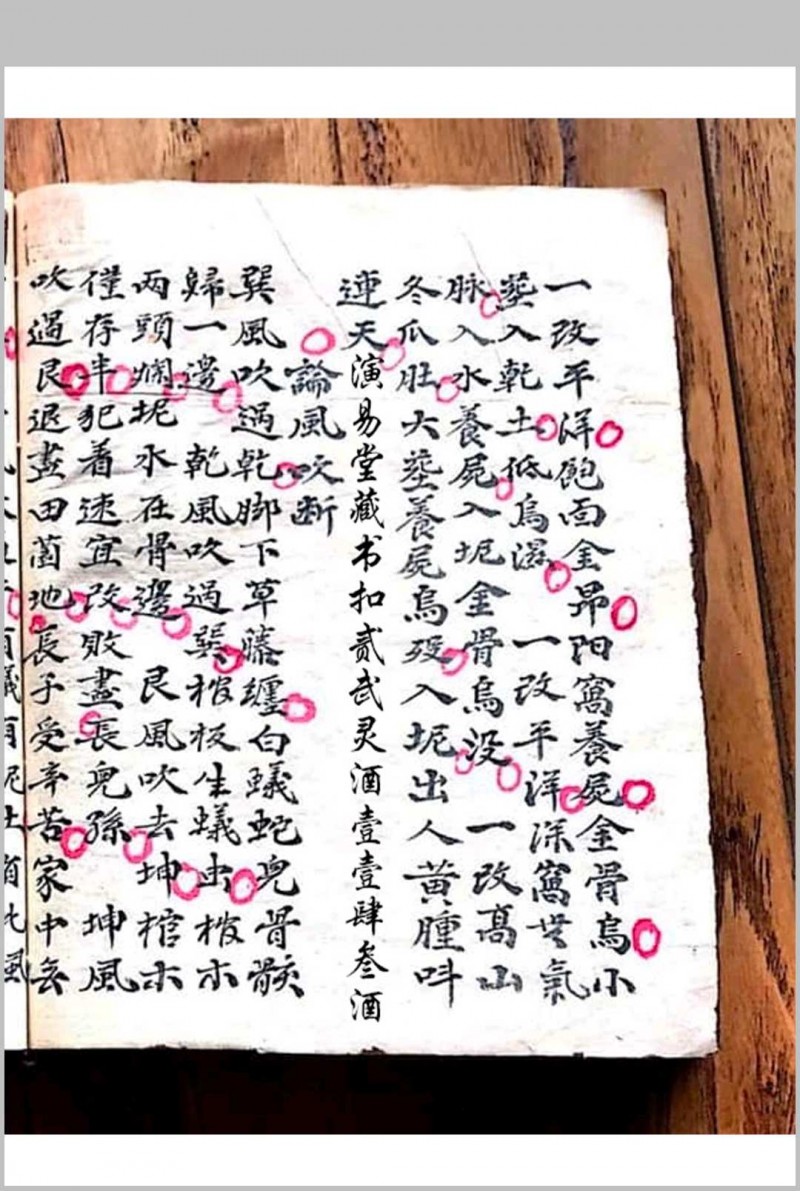 一改平洋飽面金昴阳窩養屍金骨烏小
塟入乾土低烏濕 一改平洋深窩無氣
脉入水養屍入坭金骨烏没 一改髙山
冬瓜肚大塟養屍烏殁入坭出人黄腫呌
連天
演易堂藏书扣贰贰灵酒壹壹肆叁酒
論風吹断
巽風吹過乾脚下草藤纏白蟻蛇兜骨骸
歸一邊 乾風吹過巽棺板生蟻虫棺木
两頭爛坭水在骨邊 艮風吹去坤棺木
僅存半犯着速宜改敗盡長皃孫 坤風
吹過艮退盡田薗地長子受辛苦家中無